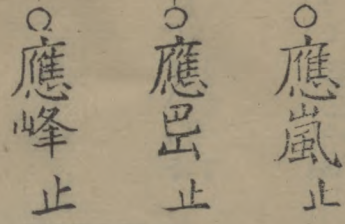 ○應嵐 止
○應 止
○應峰 止